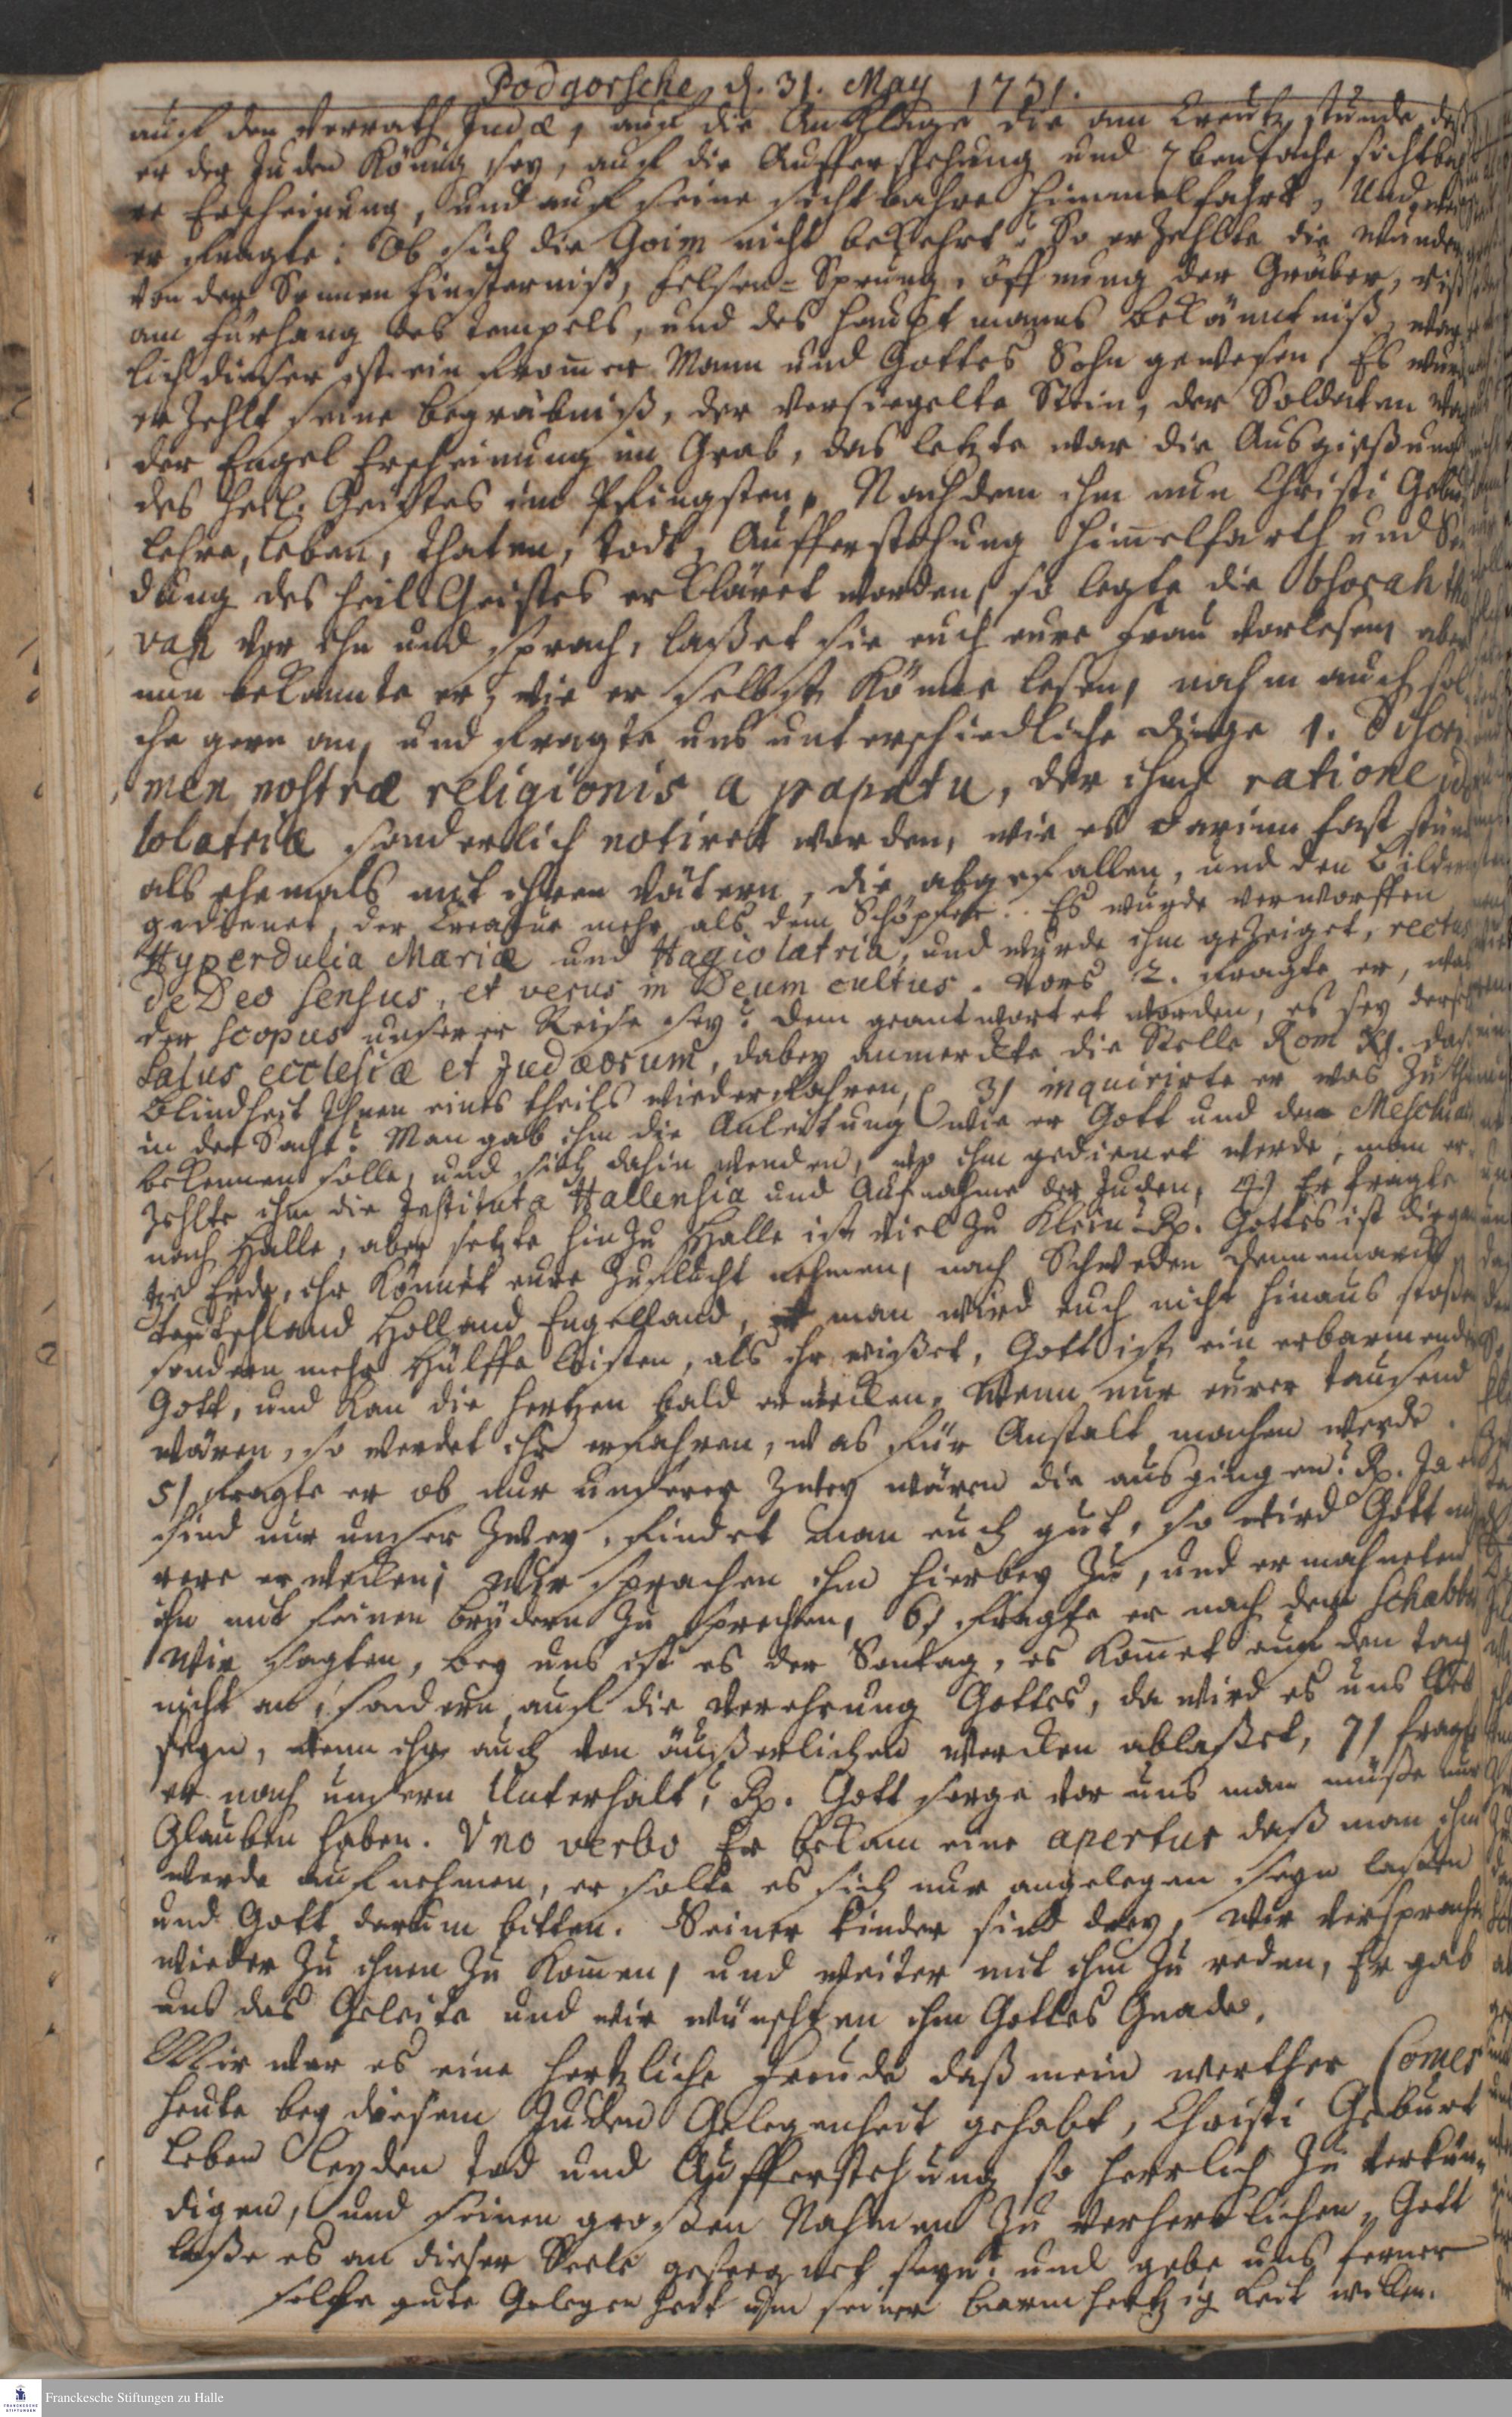 Podgorsche, d. 31. May 1731.
auf den Verrath Judæ, auf die Anklage die am Creutz stunde, daß
er der Juden König sey, auf die Aufferstehung und sichtba-
re Erscheinung, und auf seine sichtbahre Himmelfahrt, Und
er fragte: Ob sich die Goim nicht bekehrt? So erzehlte die Wunder
von der Sonnen Finsterniß, Felsen-Sprung, öffnung der Gräber, riß
am fürhang des Tempels, und des Hauptmanns bekäntniß, war-
lich dieser ist ein from̄er Mann und Gottes Sohn gewesen. Es wurd
erzehlt seine begräbniß, der versiegelte Stein, der Soldaten
der Engel Erscheinung im Grab, das letzte war die Ausgießung
des heil. Geistes im Pfingsten. Nachdem ihm nun Christi Gebu
Lehre, Leben, Thaten, Todt, Aufferstehung Him̄elfarth und Sen
dung des heil. Geistes erkläret worden, so legte die bsorah
vah vor ihn und sprach, laßet sie euch eure Frau vorlesen, aber
nun bekannte er, wie er selbst könne lesen, nahm auch sol
che gern an, und fragte uns unterschiedliche dinge 1. Discri
men nostræ religionis a papatu, der ihme ratione ido
lolatriæ sonderlich notiret worden, wie es darinn fast stünd
als ehemals mit ihren Vätern, die abgefallen, und den bildern
gedienet, der Creatur mehr als dem Schöpfer. Es wurde verworffen
Hyperdulia Mariæ und Hagiolatria, und wurde ihm gezeiget, rectus
de Deo sensus, et verus in Deum cultus. Vors 2. fragte er, was
der scopus unserer Reise sey? dem geantwortet worden, es sey der
Salus ecclesiæ et Judæorum, dabey anmerckte die Stelle Rom XI. daß
Blindheit Ihnen eines theils wiederfahren, 3) inquirirte er was zu thun
in der Sache? Man gab ihm die Anleitung wie er Gott und den Meschiach
bekennen solle, und sich dahin wenden, wo ihm gedienet werde, man er-
zehlte ihm die Instituta Hallensia und Aufnahme der Juden, 4) Er fragte
nach Halle, aber setzte hinzu Halle ist viel zu klein? R. Gottes ist die gan
tze Erde, ihr könnet eure Zuflucht nehmen, nach Schweden Dennemarck
Teutschland Holland Engelland, man wird euch nicht hinaus stoßen
sondern mehr Hülffe leisten, als ihr wißet, Gott ist ein erbarmender
Gott, und kan die Hertzen bald erwecken, Wenn nur eurer tausend
wären, so werdet ihr erfahren, was für Anstalt machen werde.
5) fragte er ob nur unserer zwey wären die ausgingen? R. Ja es
sind nur unser zwey, findet man euch gut, so wird Gott meh
rere erwecken; Wir sprachen ihm hierbey zu, und ermahneten
ihn mit seinen brüdern zu sprechen, 6) fragte er nach dem Schabbas
Wir sagten, bey uns ist es der Sontag, es kom̄et auf den tag
nicht an, sondern auf die Verehrung Gottes, da wird es uns lieb
seyn, wenn ihr auch von äußerlichen wercken ablaßet, 7) fragte
er nach unserm Unterhalt? R. Gott sorge vor uns man müße nur
Glauben haben. Uno verbo Er bekam eine apertur daß man ihn
werde aufnehmen, er solte es sich nur angelegen seyn laßen
und Gott darum bitten. Seiner Kinder sind drey, wir versprachen
wieder zu ihnen zu kom̄en, und weiter mit ihm zu reden, Er gab
uns das Geleite und wir wünschten ihm Gottes Gnade.
Mir war es eine hertzliche Freude daß mein werther Comes
heute bey diesem Juden Gelegenheit gehabt, Christi Geburt
Leben Leyden Tod und Aufferstehung so herrlich zu verkün-
digen, und seinen großen Nahmen zu verherrlichen, Gott
laße es an dieser Seele geseegnet seyn? und gebe uns ferner
solche gute Gelegenheit um seiner Barmhertzigkeit willen.
Franckesche Stiftungen zu Halle